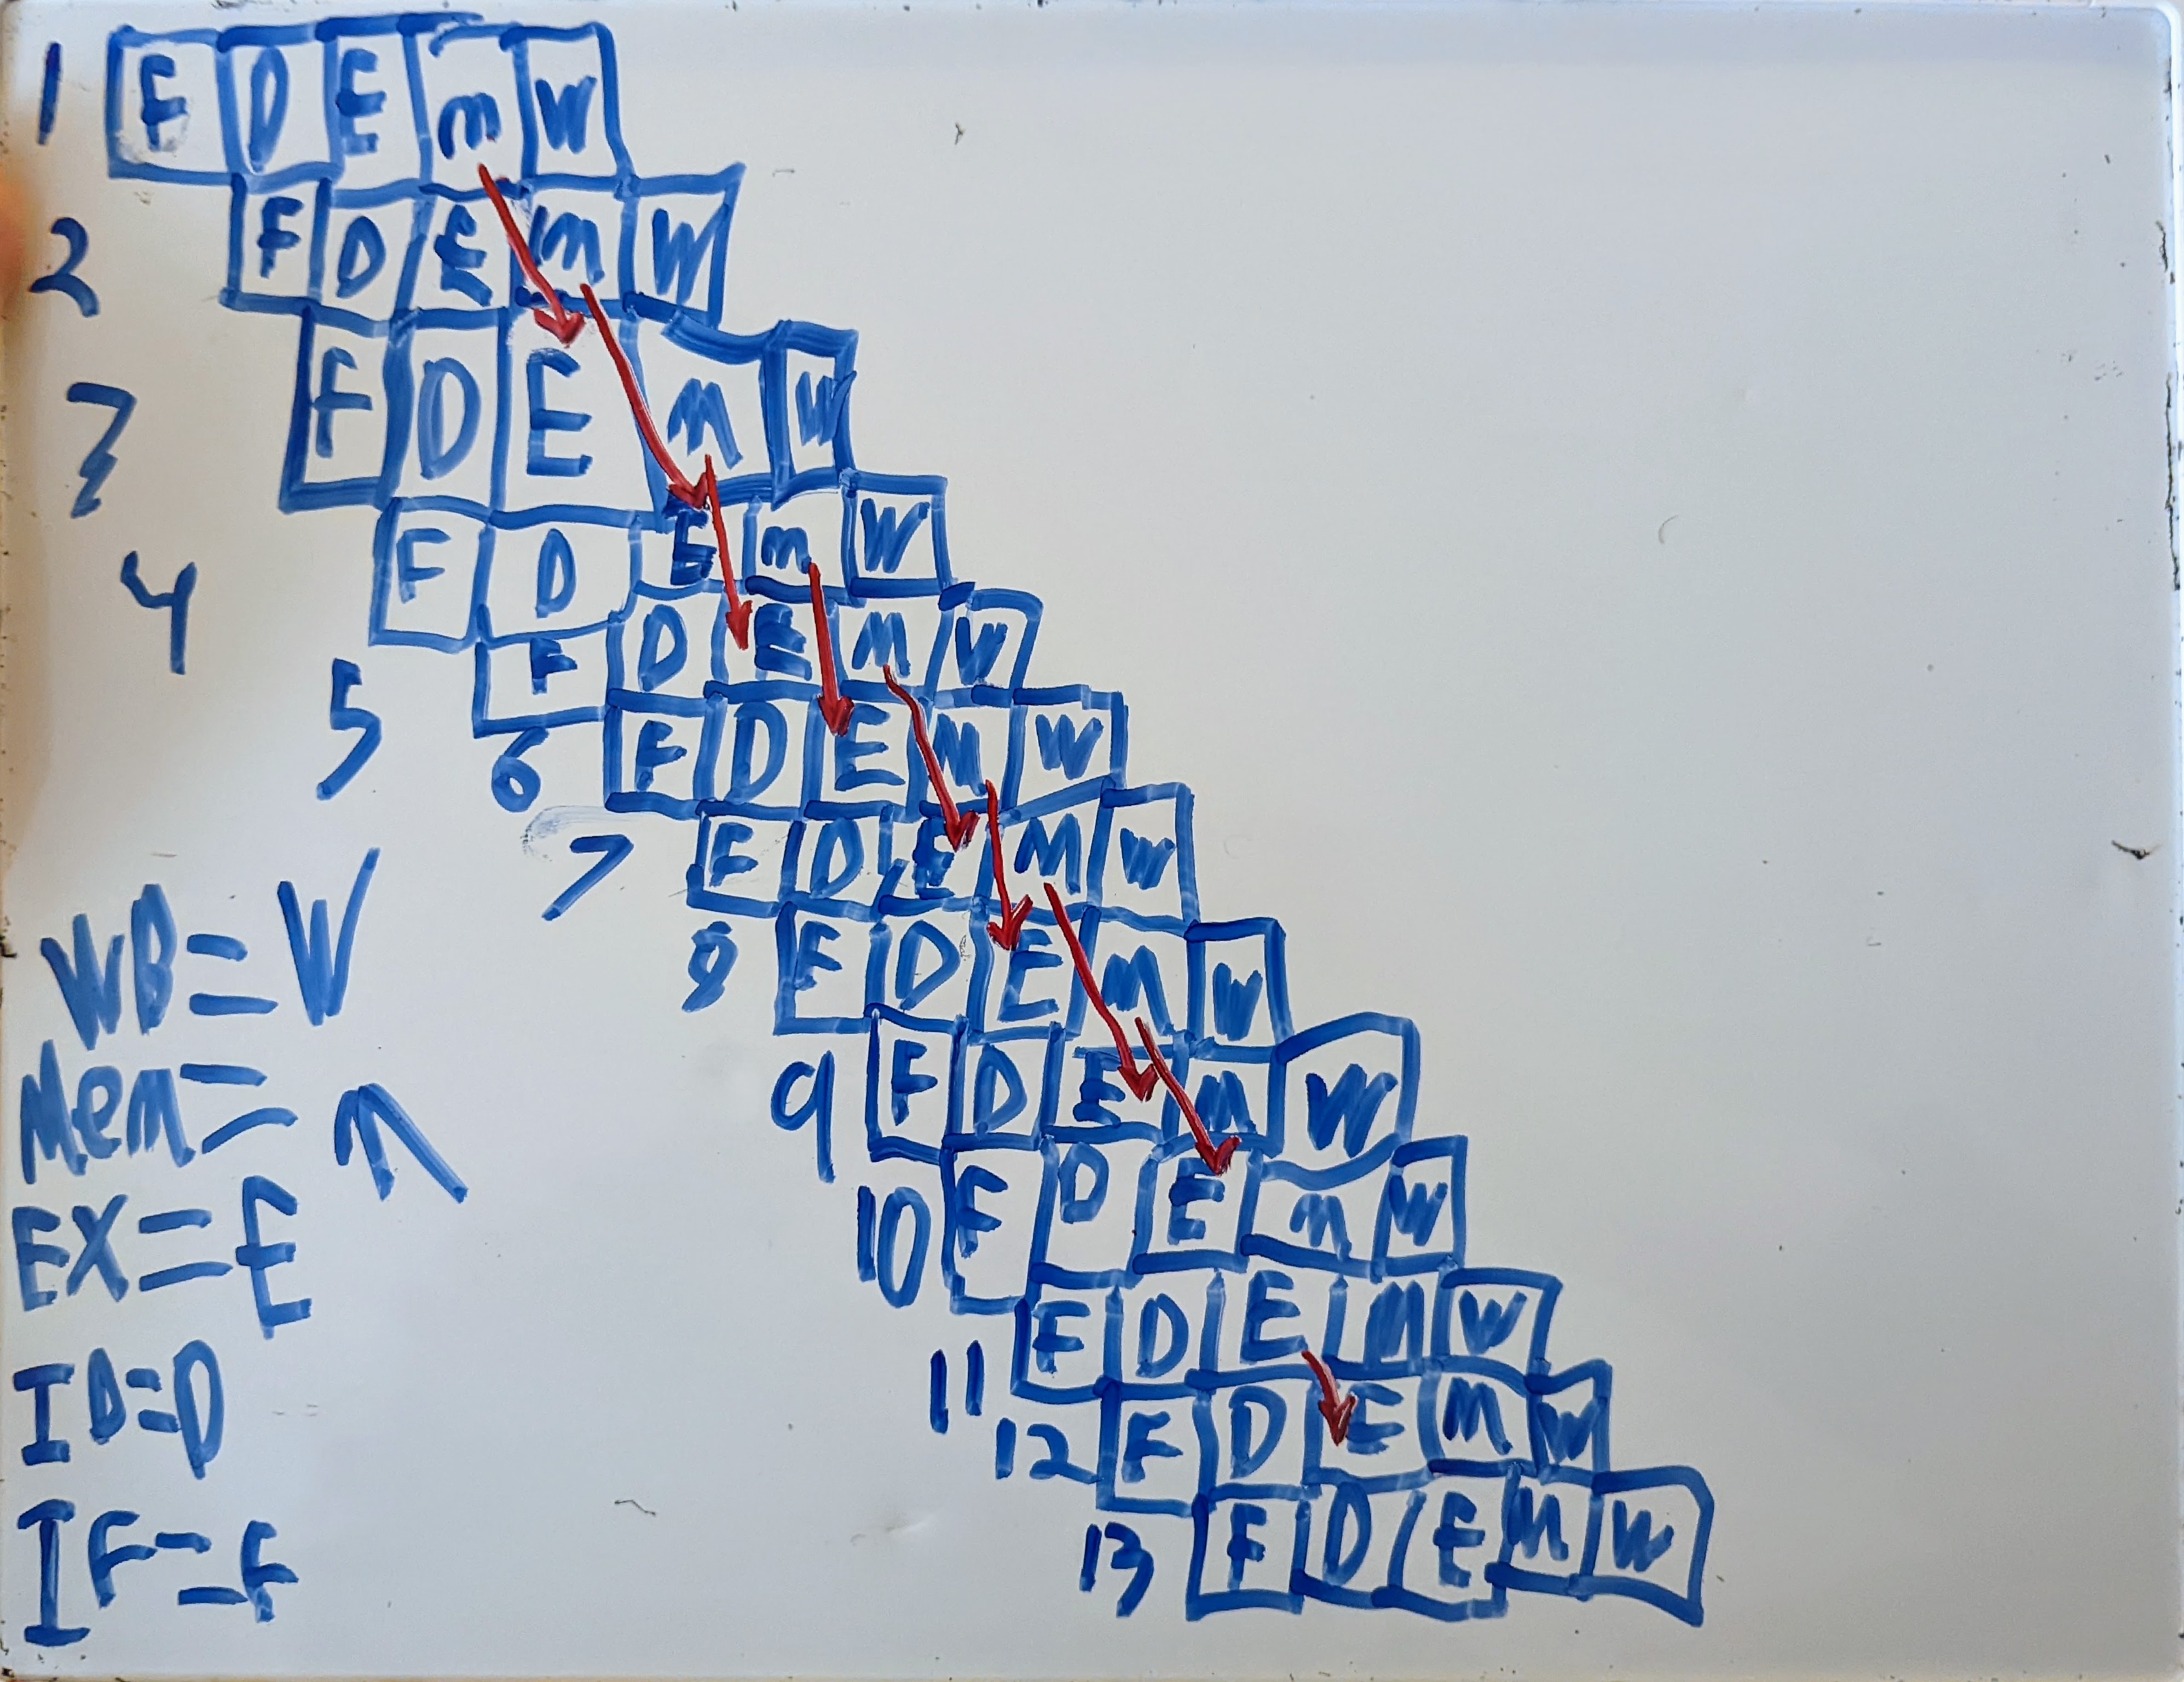 1 F D E m W
2 F D E m W
3 F D E M W
4 F D E m W
5 F D E M W
6 F D E M W
7 F D E M W
8 F D E M W
9 F D E M W
10 F D E M W
11 F D E M W
12 F D E M W
13 F D E M W
WB=W
Mem=M
EX=E
ID=D
IF=F